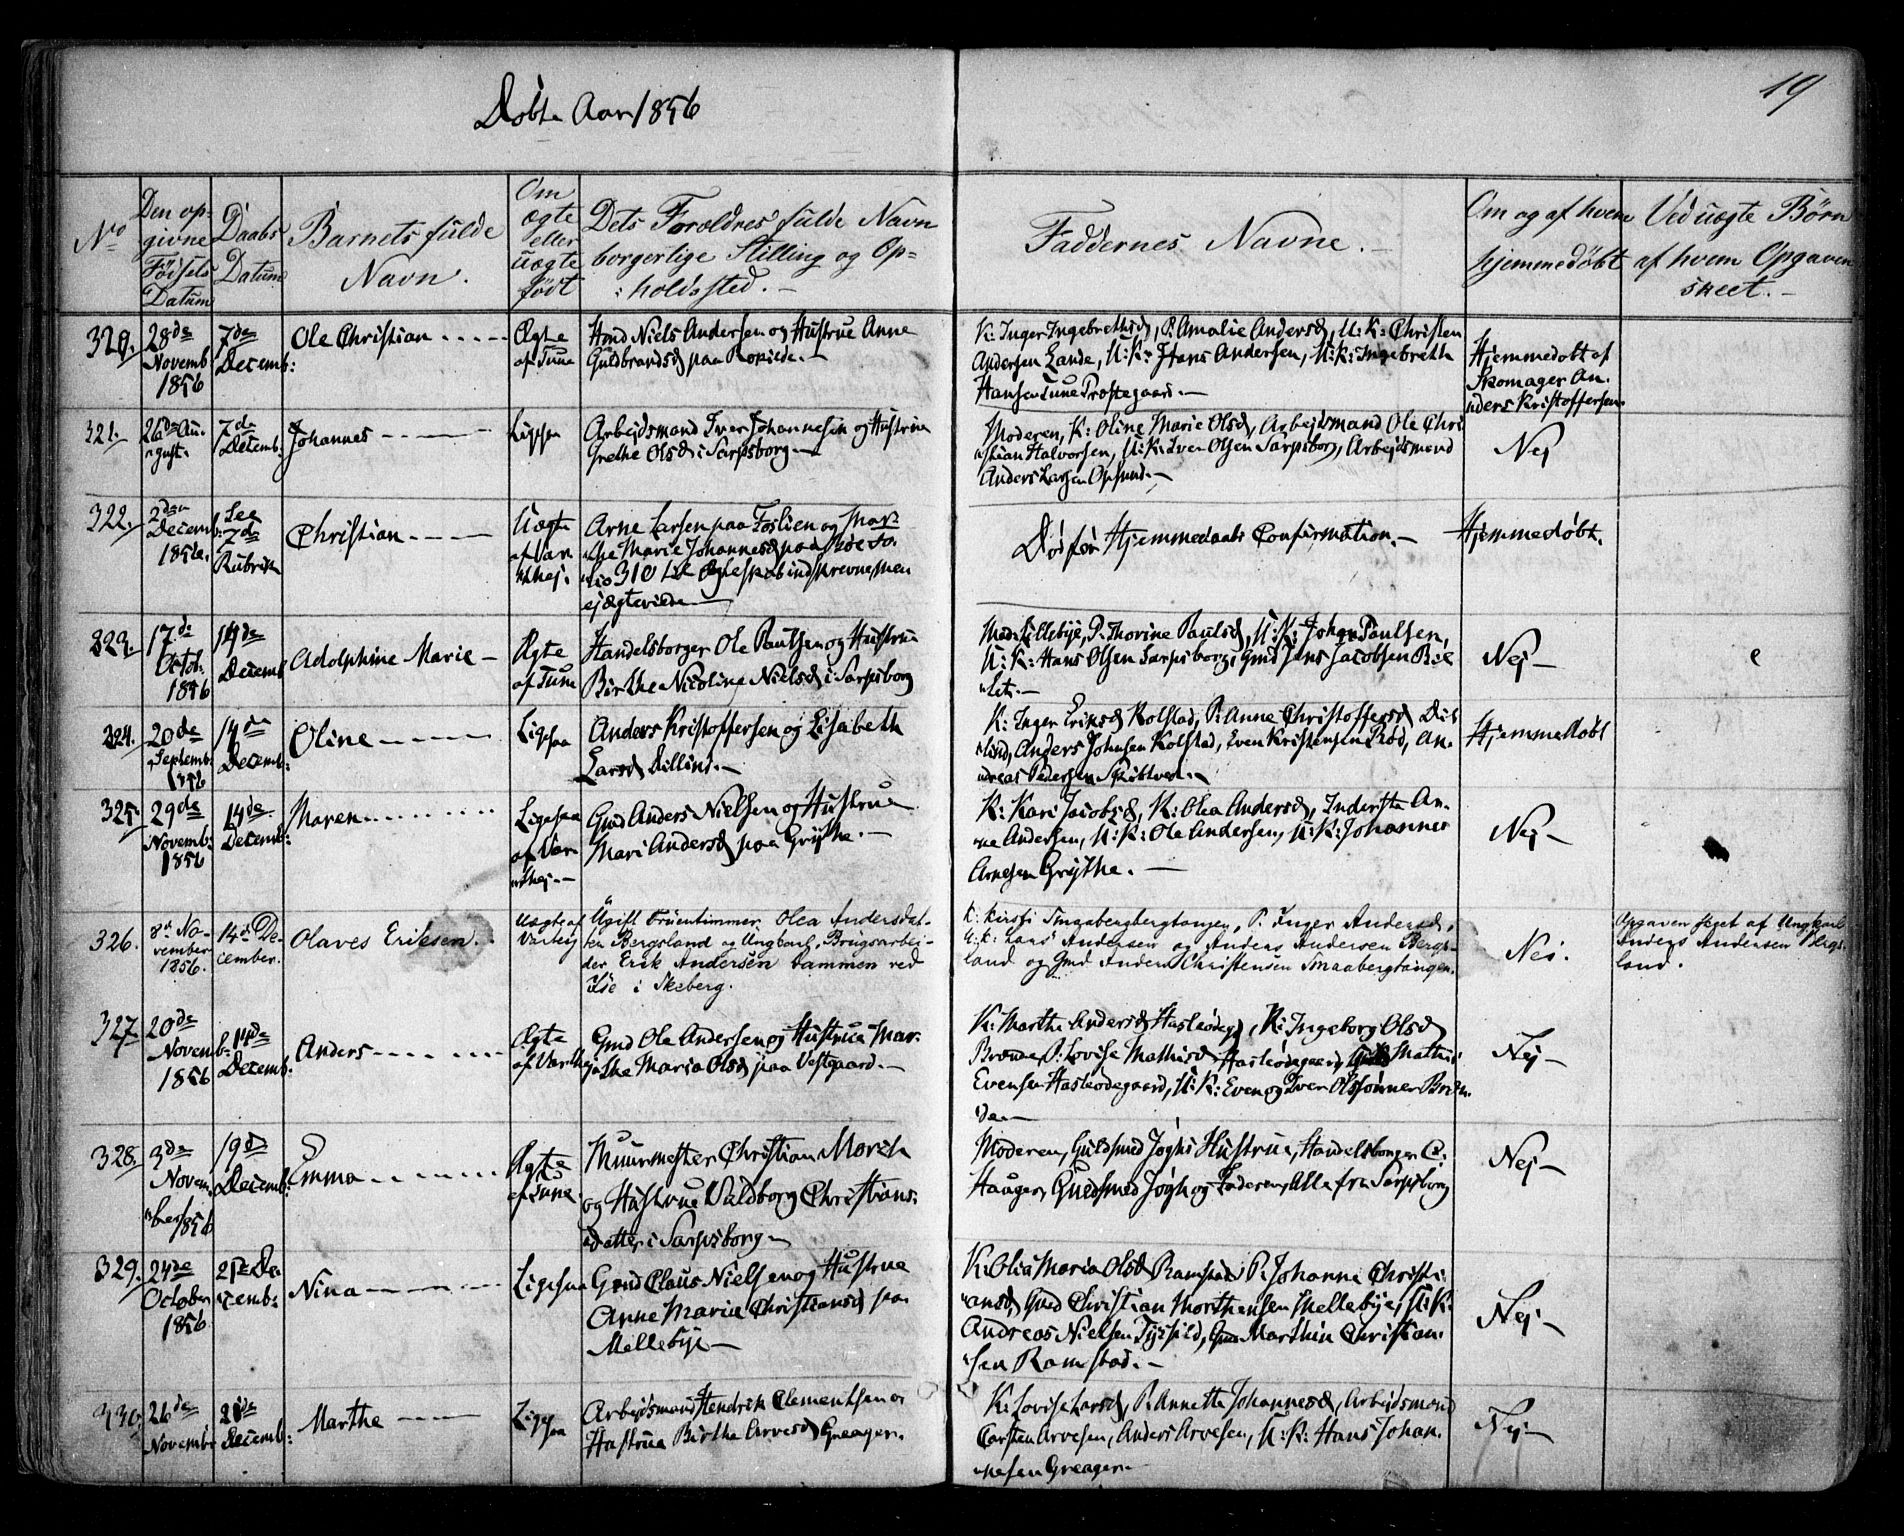 19
Døbte Aar 1856
No
Den op-
givne
Fødsels
Datum
Daabs
Datum
Barnets fulde
Navn.
Om
ægte
eller
uægte
født
Dets Forældres fulde Navn
borgerlige Stilling og Op-
holdssted. -
Faddernes Navne. -
Om og af hvem
hjemmedøbt
Ved uægte Børn
af hvem Opgaven
skeet. -
320.
28de
Novemb
1856
7de
Decemb:
Ole Christian
Ægte
af Tune
Gmd Niels Andersen og Hustrue Anne
Guldbrandsd paa
K: Inger Ingebrethsd, P: Amalie Andersd, U: K: Christen
Andersen Lande, U: K: Hans Andersen, U: K: Ingebreth
Hansen Tune Prøstegaard. -
Hjemmedøbt af
Skomager An-
ders Kristoffersen
321.
26de Au-
gust.
7de
Decemb.
Johannes
Ligesaa
Arbejdsmand Iver Johannesen og Hustrue
Grethe Olsd i Sarpsborg -
Moderen, K: Oline Marie Olsd, Arbejdsmand Ole Chri
stian Halvorsen, U: K: Iver Olsen Sarpsborg, Arbejdsmand
Anders Larsen Opsund. -
Nej
322.
2den
Decemb:
1856.
See
7de
Rubrik
Christian
Uægte
af Var
thej.
Arne Larsen paa Foslien og Mar-
the Marie Johannesd paa
310 ægteskab indskrevne, men
ej ægteviede -
Død før Hjemmedaabs Confirmation. -
Hjemmedøbt.
323.
17de
Octob:
1856
14de
Decemb
Adolphine Marie -
Ægte
af Tune
Handelsborger Ole Paulsen og Hustrue
Birthe Nicoline Nielsd i Sarpsborg
Mad: Lillebye, P: Thorine Paulsd, U: K: Johan Paulsen,
U: K: Hans Olsen Sarpsborg, Gmd Jens Jacobsen
Nej -
324.
20de
Septemb:
1856
14de
Decemb:
Oline
Ligesaa
Anders Kristoffersen og Lisabeth
Larsd Dillind. -
K: Inger Eriksd Kolstad, P: Anne Christoffersd Dil
lind, Anders Johnsen Kolstad, Even Kristensen Rød, An-
dreas Pedersen
Hjemmedøbt
325.
29de
Novemb:
1856
14de
Decemb:
Maren
Ligesaa
af Var
thej. -
Gmd Anders Nielsen og Hustrue
Mari Andersd paa Grythe. -
K: Kari Jacobsd, K: Olea Andersd, Inderste An-
ne Andersen, U: K: Ole Andersen, U: K: Johannes
Arnesen Grythe. -
Nej -
326.
8de No-
vember
1856.
14de De-
cember.
Olaves Eriksen.
Uægte af
Varteig
Ugift Fruentimmer Olea Andersdat-
ter Bergsland og Ungkarl, Brugsarbei-
der Erik Andersen Dammen ved
Ise i Skeberg.
K: Kirsti Smaabergbergtangen, P. Inger Andersd,
U: K: Hans Andersen og Anders Andersen Bergs-
land og Gmd Anders Christensen Smaabergtangen.
Nei.
Opgaven skeet af Ungkarl
Anders Andersen Bergs-
land.
327.
20de
Novemb:
1856
14de
Decemb:
Anders
Ægte
af Varthej
Gmd Ole Andersen og Hustrue Mar-
the Maria Olsd paa Vestgaard. -
K: Marthe Andersd Hasleødegd, K: Ingeborg Olsd
P: Lovise Mathisd Hasleødegaard, Gmd Mathis
Evensen Hasleødegaard, U: K: Even og Iver Olssønner
328.
3de
Novem-
ber 1856
19de
Decemb:
Emma
Ægte
af Tune
Muurmester Christian Morch
og Hustrue Valdborg Christians-
datter i Sarpsborg -
Moderen, Guldsmed Jøghs Hustrue, Handelsborger C:
Hauger, Guldsmed Jøgh og Faderen, Alle fra Sarpsborg
Nej -
329.
24de
October
1856
21de De-
cemb:
Nina
Ligesaa
Gmd Claus Nielsen og Hustrue
Anne Maria Christiansd paa
Mellebye -
K: Olia Maria Olsd Ramstad P: Johanne Christi-
ansd, Gmd Christian Morthensen Mellebye, U: K:
Andreas Nielsen Gmd Marthin Christian-
sen Ramstad. -
Nej -
330.
26de
Novembr
21de
Decemb:
Marthe
Ligesaa
Arbejdsmand Hendrik Clementsen og
Hustrue Birthe Arvesd Greager.
K: Lovise Larsd, P: Annette Johannesd, Arbejdsmand
Carsten Arvesen, Anders Arvesen, U: K: Hans Johan-
nesen Greager -
Nej -